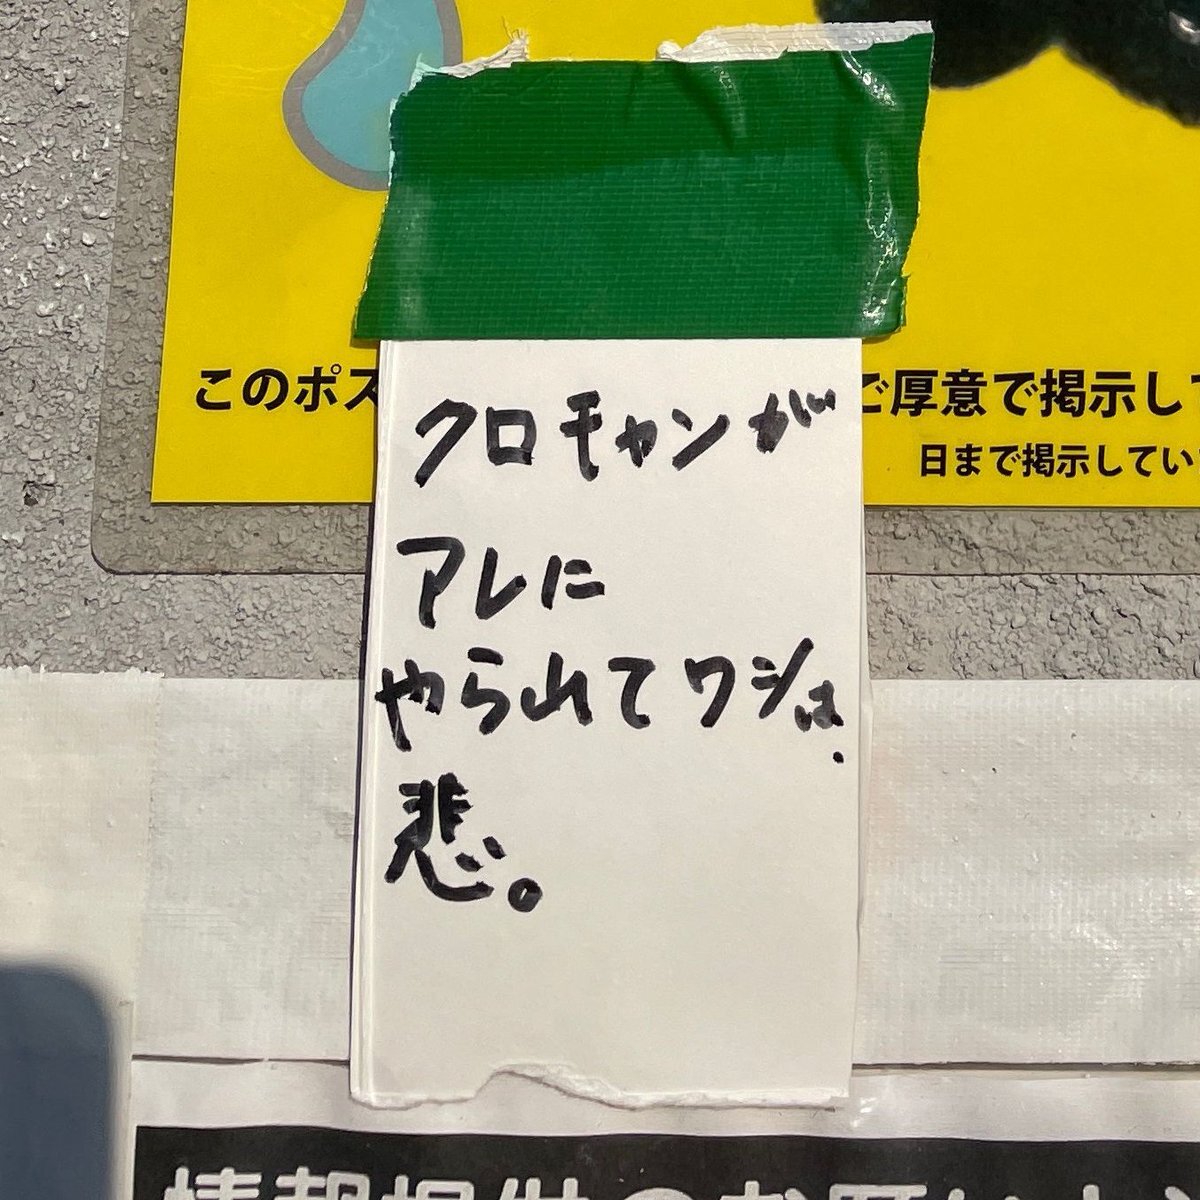 このポス
ご厚意で掲示して
日まで掲示してい
クロチャンが
アレに
やられてワシは、
悲。
情報提供のお願い